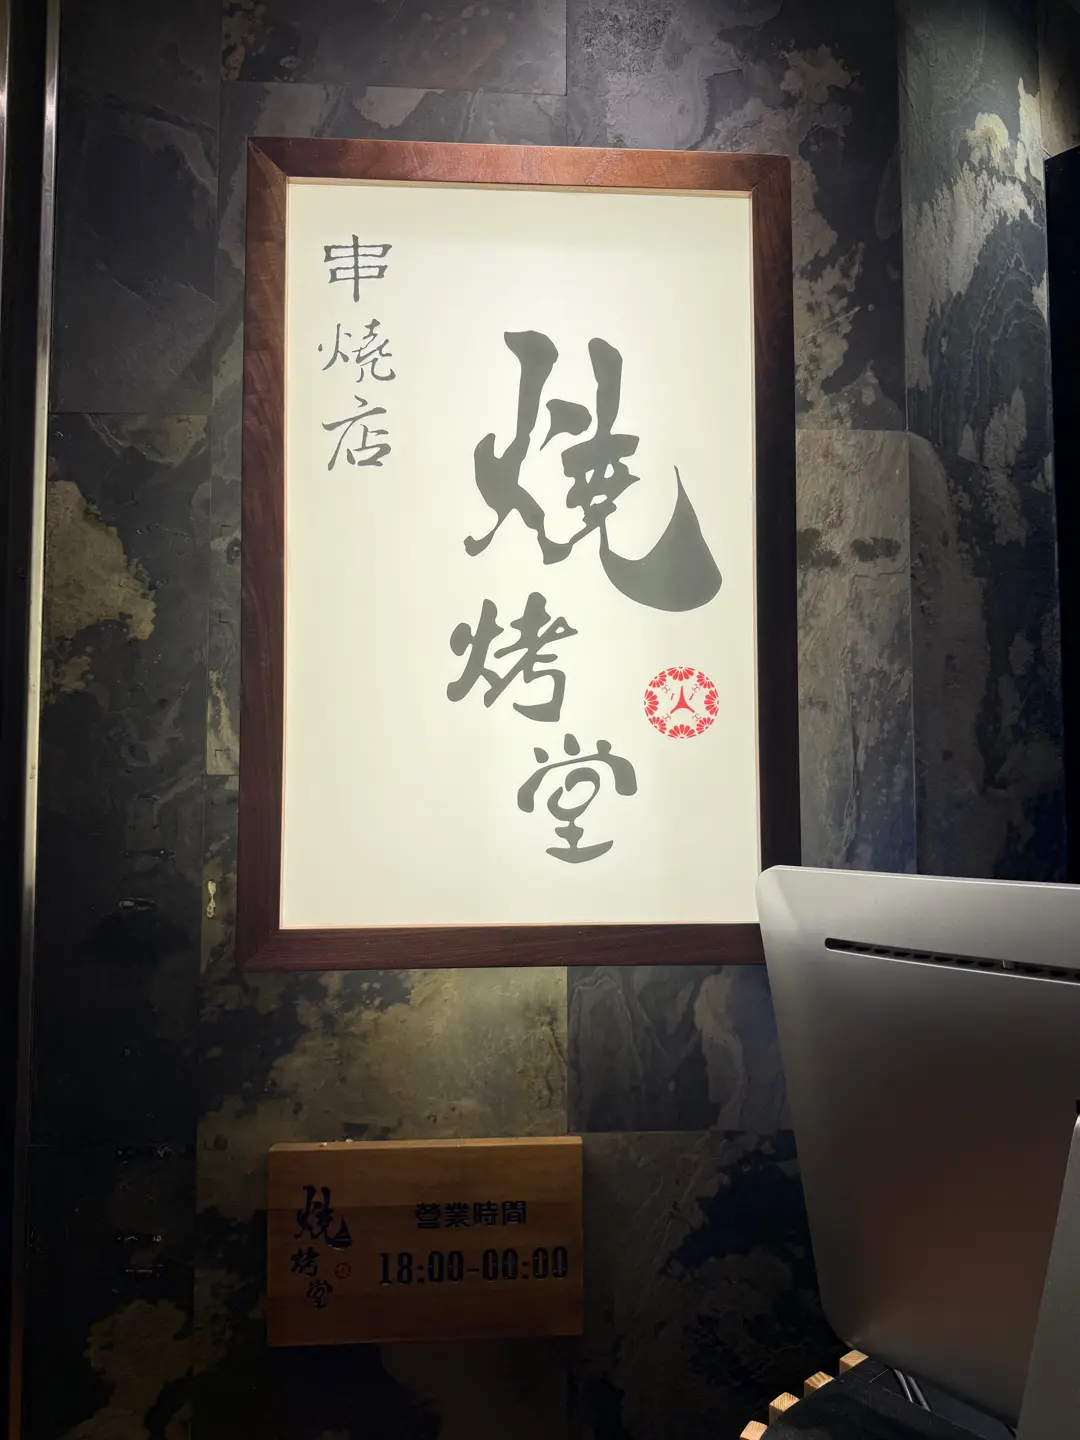 串燒店
燒烤堂
火
燒烤堂
營業時間
18:00-00:00